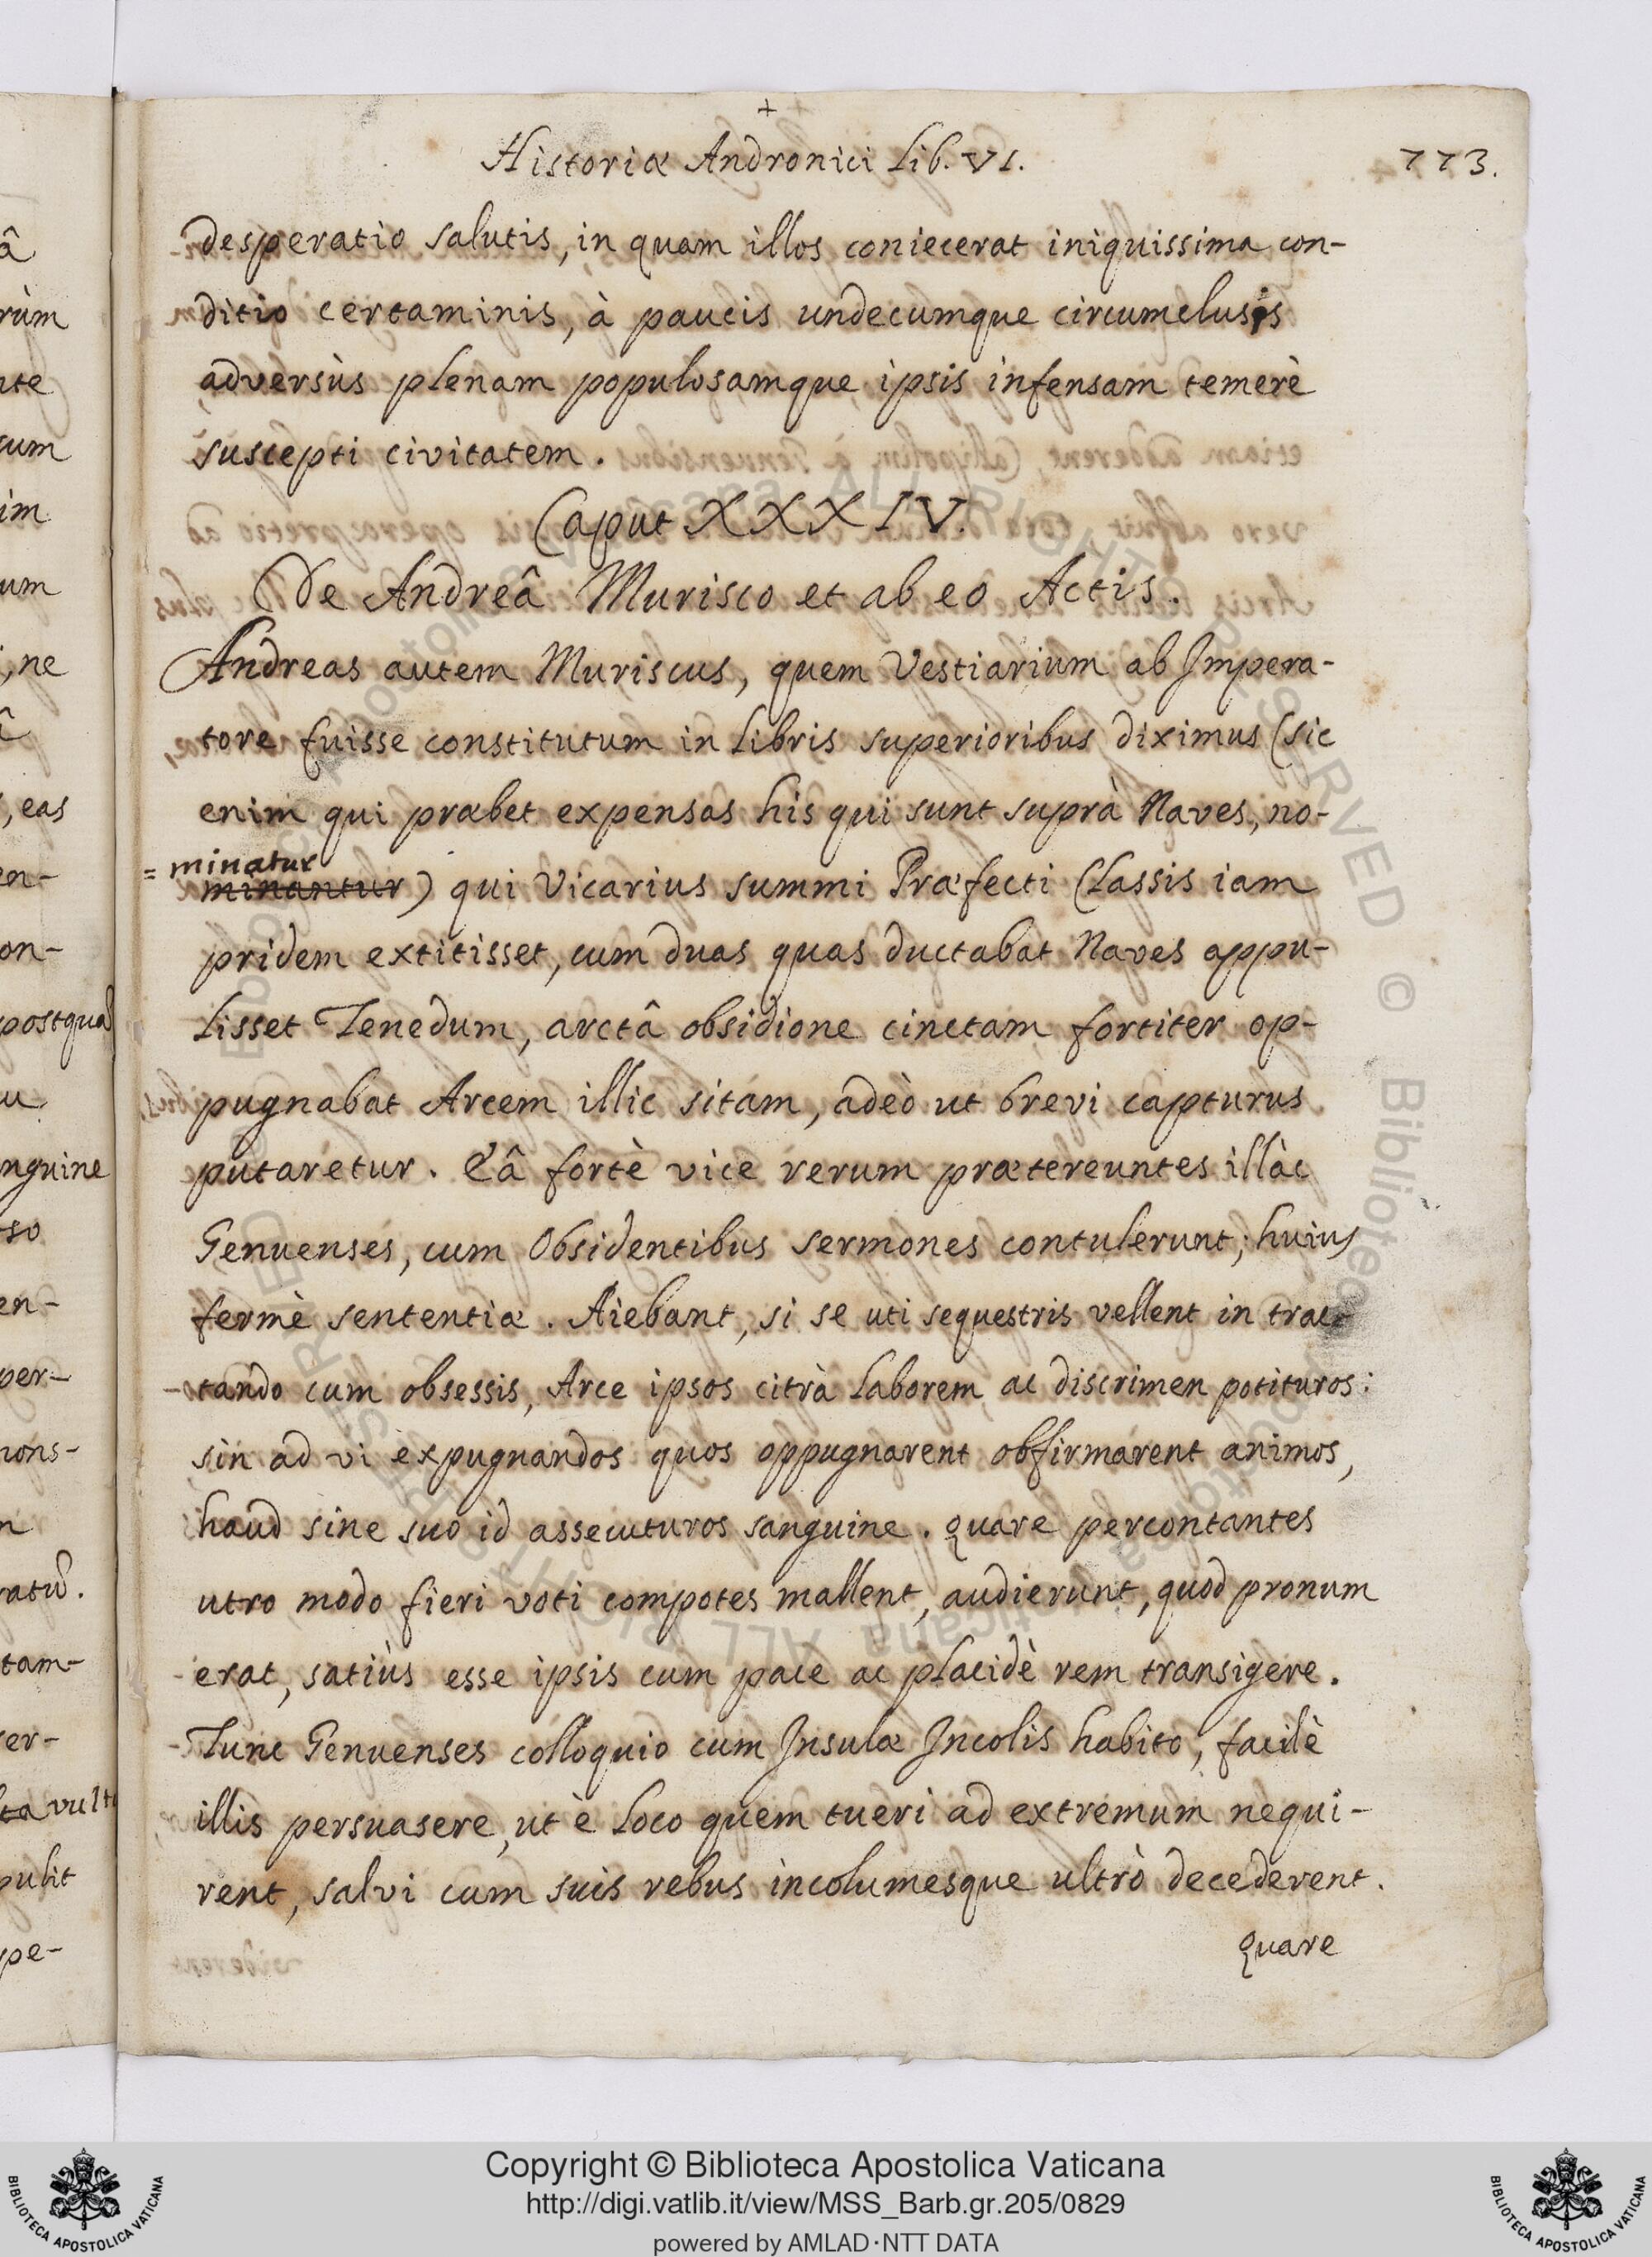 +
Historiæ Andronici Lib. VI.
773.
desperatio salutis, in quam illos coniecerat iniquissima con-
ditio certaminis, à paucis undecumque circumclusis
adversùs plenam populosamque ipsis infensam temerè
suscepti civitatem.
Caput XXXIV.
De Andreâ Murisco et ab eo Actis.
Andreas autem Muriscus, quem Vestiarium ab Impera-
tore fuisse constitutum in Libris superioribus diximus (sic
enim qui præbet expensas his qui sunt suprà Naves, no-
=minatur
minantur) qui Vicarius summi Præfecti Classis iam
pridem extitisset, cum duas quas ductabat Naves appu-
lisset Tenedum, arctâ obsidione cinctam fortiter op-
pugnabat Arcem illic sitam, adeò ut brevi capturus
putaretur. Eâ fortè vice rerum prætereuntes illàc
Genuenses, cum Obsidentibus sermones contulerunt; huius
fermè sententiæ. Aiebant, si se uti sequestris vellent in trac-
tando cum obsessis, Arce ipsos citrà laborem ac discrimen potituros:
sin ad vi expugnandos quos oppugnarent obfirmarent animos,
haud sine suo id assecuturos sanguine. Quare percontantes
utro modo fieri voti compotes mallent, audierunt, quod pronum
erat, satiùs esse ipsis cum pace ac placidè rem transigere.
Tunc Genuenses colloquio cum Insulæ Incolis habito, facilè
illis persuasere, ut è loco quem tueri ad extremum nequi-
rent, salvi cum suis rebus incolumesque ultrò decederent.
Quare
â
rùm
um
im
um
, ne
, eas
en-
on-
postquã
nguine
so
en-
per-
nons-
ratũ.
tam-
er-
ta vultu
pulit
pe-
Copyright © Biblioteca Apostolica Vaticana
http://digi.vatlib.it/view/MSS_Barb.gr.205/0829
powered by AMLAD·NTT DATA
BIBLIOTECA APOSTOLICA VATICANA
BIBLIOTECA APOSTOLICA VATICANA